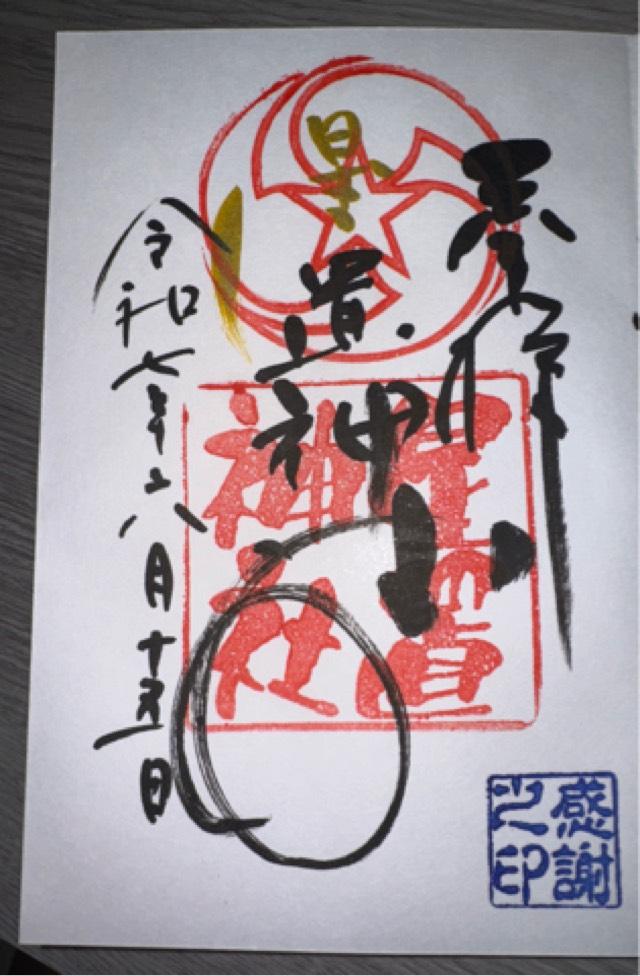 奉拝
星置神社
星置
神社
令和七年六月十五日
感謝
之印